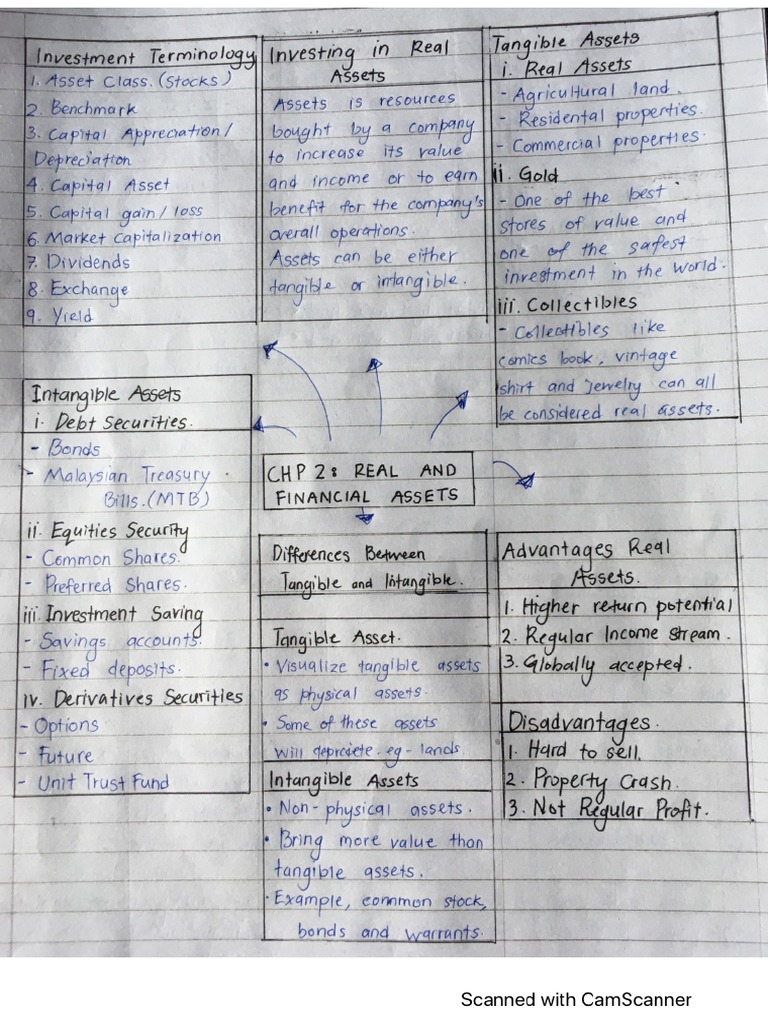 Investment Terminology
1. Asset Class. (Stocks)
2. Benchmark
3. Capital Appreciation/
Depreciation
4. Capital Asset
5. Capital gain/loss
6. Market Capitalization
7. Dividends
8. Exchange
9. Yield
Investing in Real
Assets
Assets is resources
bought by a company
to increase its value
and income or to earn
benefit for the company's
overall operations.
Assets can be either
tangible or intangible.
Tangible Assets
i. Real Assets
- Agricultural land.
- Residental properties.
- Commercial properties.
ii. Gold
- One of the best
stores of value and
one of the safest
investment in the world.
iii. Collectibles
- Collectibles like
comics book, vintage
shirt and jewelry can all
be considered real assets.
Intangible Assets
i. Debt Securities.
- Bonds
- Malaysian Treasury
Bills. (MTB)
ii. Equities Security
- Common Shares.
- Preferred Shares.
iii. Investment Saving
- Savings accounts.
- Fixed deposits.
iv. Derivatives Securities
- Options
- Future
- Unit Trust Fund
CHP 2: REAL AND
FINANCIAL ASSETS
Differences Between
Tangible and Intangible.
Tangible Asset.
• Visualize tangible assets
as physical assets.
• Some of these assets
will depreciete. eg - lands.
Intangible Assets
• Non-physical assets.
• Bring more value than
tangible assets.
• Example, common stock,
bonds and warrants.
Advantages Real
Assets.
1. Higher return potential
2. Regular Income stream.
3. Globally accepted.
Disadvantages.
1. Hard to sell.
2. Property Crash.
3. Not Regular Profit.
Scanned with CamScanner